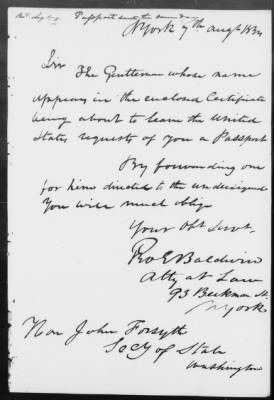 Passport sent the same day
N York 7th Augt 1834
Sir
The Gentleman whose name
appears in the enclosed Certificate
being about to leave the United
States, requests of you a Passport
By forwarding one
for him directed to the undersigned
You will much oblige
Your Obt Servt.
Baldwin
Atty at Law
93 Beekman St
N York
Hon John Forsyth
Secy of State
Washington